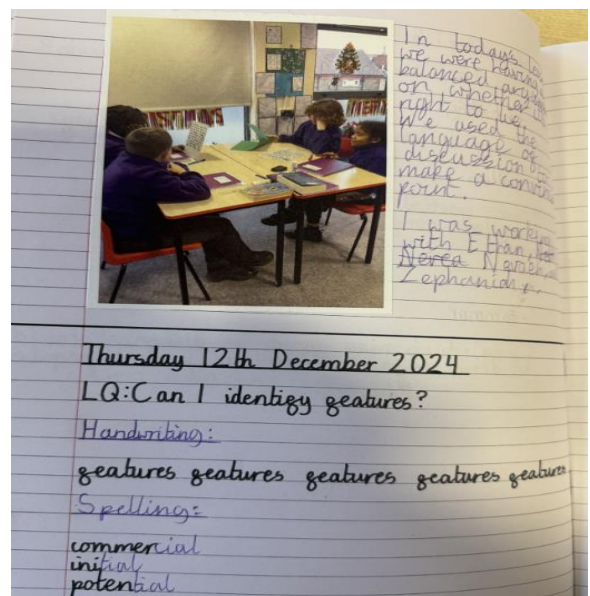 In today's
we were having
balanced
on whether
right to lie
We used the
language of
discussion
make a
point.
I was working
with Ethan,
Nerea Nevaeh,
Zephaniah
Thursday 12th December 2024
LQ:Can I identify features?
Handwriting:
features features features features features
Spelling:
commercial
initial
potential